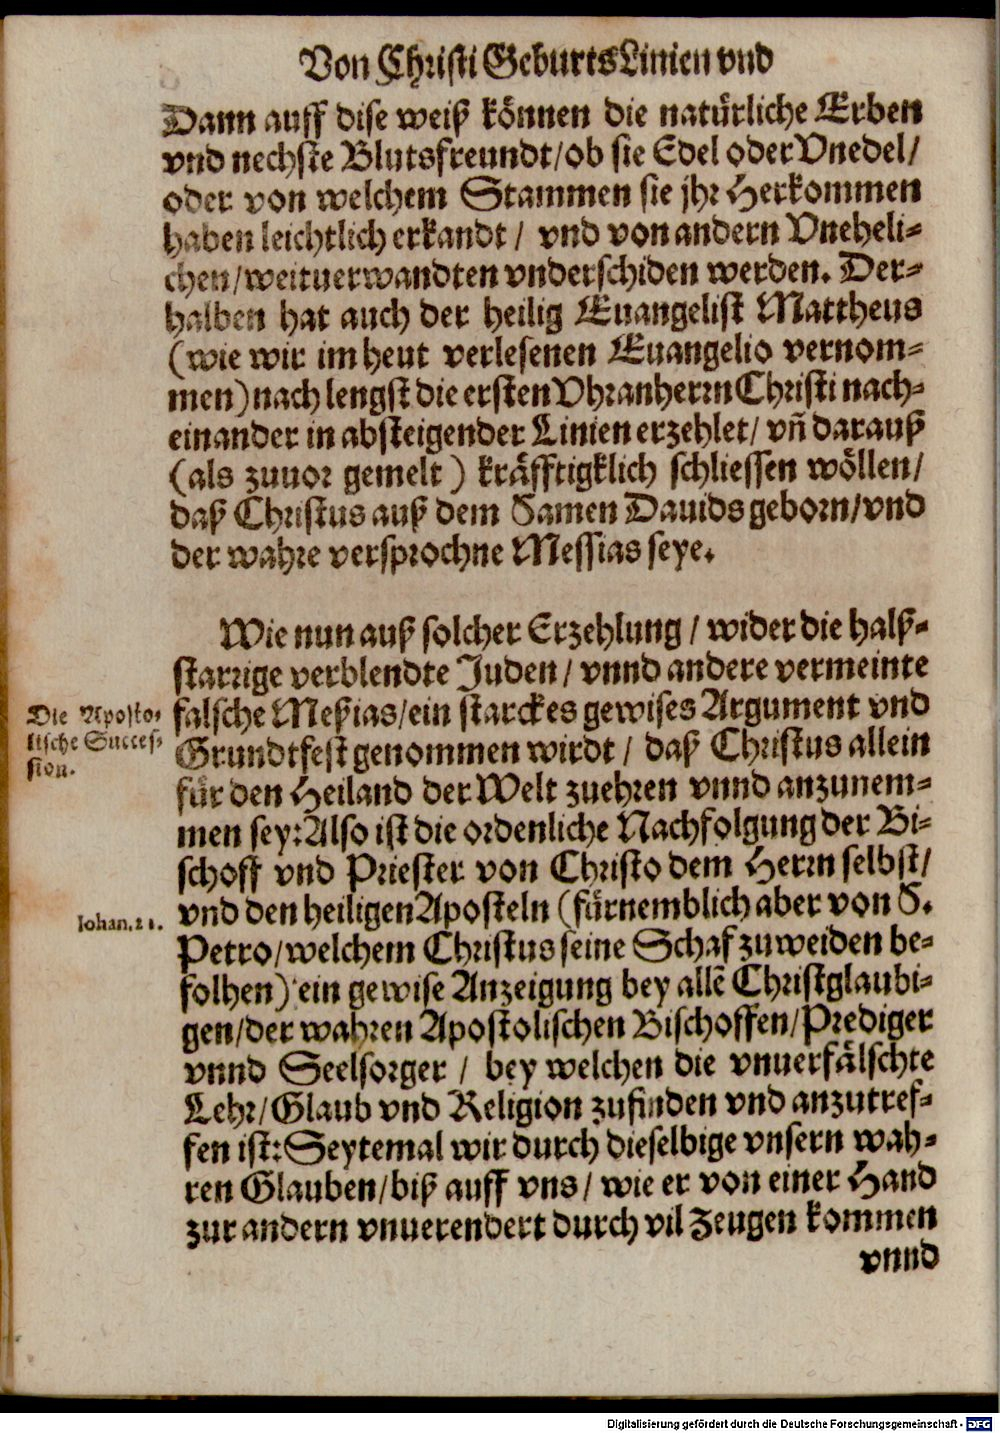 Von Christi Geburts Linien vnd
Dann auff dise weiß können die natürliche Erben
vnd nechste Blutsfreundt/ob sie Edel oder Vnedel/
oder von welchem Stammen sie jhr Herkommen
haben leichtlich erkandt/ vnd von andern Vneheli-
chen/weituerwandten vnderschiden werden. Der-
halben hat auch der heilig Euangelist Mattheus
(wie wir im heut verlesenen Euangelio vernom-
men) nach lengst die ersten Vhranherrn Christi nach-
einander in absteigender Linien erzehlet/ vñ darauß
(als zuuor gemelt) kräfftigklich schliessen wöllen/
daß Christus auß dem Samen Dauids geborn/vnd
der wahre versprochne Messias seye.
Wie nun auß solcher Erzehlung / wider die halß-
starrige verblendte Juden/ vnnd andere vermeinte
Die Aposto-
lische Succes-
sion.
falsche Meßias/ein starckes gewises Argument vnd
Grundtfest genommen wirdt / daß Christus allein
für den Heiland der Welt zuehren vnnd anzunem-
men sey: Also ist die ordenliche Nachfolgung der Bi-
schoff vnd Priester von Christo dem Herrn selbst/
Iohan. 21.
vnd den heiligen Aposteln (fürnemblich aber von S.
Petro/welchem Christus seine Schaf zuweiden be-
folhen) ein gewise Anzeigung bey allē Christglaubi-
gen/der wahren Apostolischen Bischoffen/Prediger
vnnd Seelsorger / bey welchen die vnuerfälschte
Lehr/Glaub vnd Religion zufinden vnd anzutref-
fen ist: Seytemal wir durch dieselbige vnsern wah-
ren Glauben/biß auff vns/ wie er von einer Hand
zur andern vnuerendert durch vil Zeugen kommen
vnnd
Digitalisierung gefördert durch die Deutsche Forschungsgemeinschaft - DFG